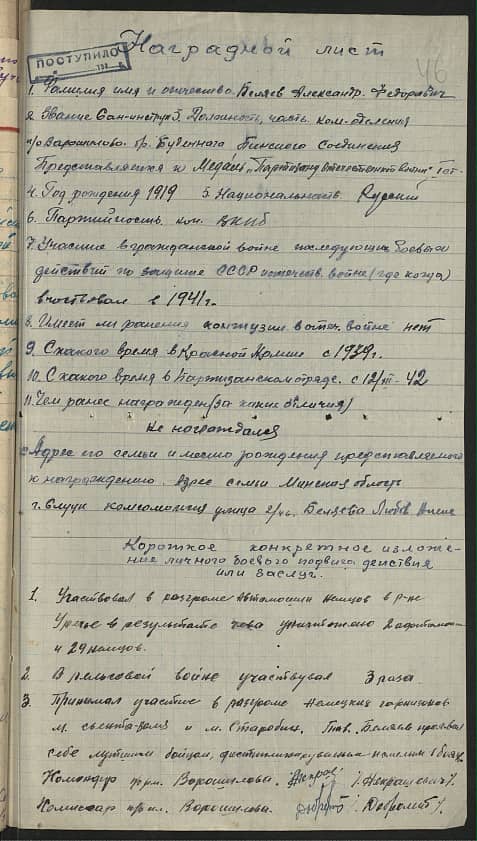 Наградной лист
46
ПОСТУПИЛО
1. Фамилия имя и отчество Беляев Александр Федорович
2. Звание Сан-инструк 3. Должность, часть ком-отделения
п/о Ворошилова бр. Буденного Пинского Соединения
Представляется к Медаль "Партизану Отечественной войны" I ст.
4. Год рождения 1919 5. Национальность Русский
6. Партийность кан. ВКПб
7. Участие в гражданской войне последующих боевых
действий по защите СССР и отечеств. войне (где когда)
участвовал с 1941 г.
8. Имеет ли ранения контузии в отеч. войне нет
9. С какого время в Красной Армии с 1939 г.
10. С какого время в Партизанском отряде. с 12/III-42
11. Чем ранее награжден (за какие отличия)
Не награждался
Адрес его семьи и место рождения представляемого
к награждению. Адрес семьи Минская область
г. Слуцк комсомольская улица Беляева
Короткое конкретное изложе-
ние личного боевого подвига действия
или заслуг.
1. Участвовал в разгроме Автомашин немцев в р-не
Уречье в результате чего уничтожено 2 автомаш-
и 29 немцев.
2. В рельсовой войне участвовал 3 раза.
3. Принимал участие в разгроме немецких гарнизонов
м. и м. Старобин. Тов. Беляев проявил
себя лучшим бойцом,
Командир п/о им. Ворошилова. /Некрашевич/.
Комиссар п/о им. Ворошилова.